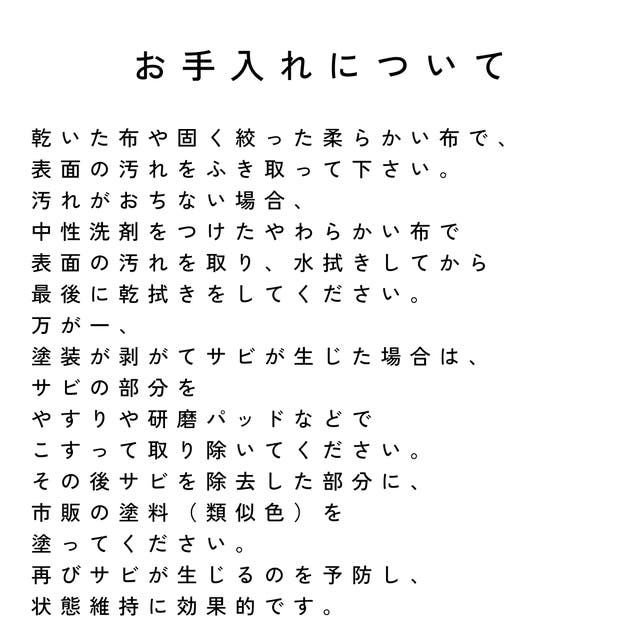 お手入れについて
乾いた布や固く絞った柔らかい布で、
表面の汚れをふき取って下さい。
汚れがおちない場合、
中性洗剤をつけたやわらかい布で
表面の汚れを取り、水拭きしてから
最後に乾拭きをしてください。
万が一、
塗装が剥がてサビが生じた場合は、
サビの部分を
やすりや研磨パッドなどで
こすって取り除いてください。
その後サビを除去した部分に、
市販の塗料（類似色）を
塗ってください。
再びサビが生じるのを予防し、
状態維持に効果的です。